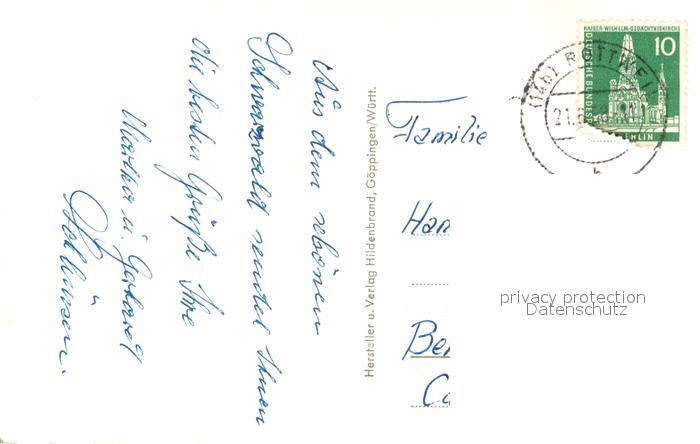 Aus dem schönen
Schwarzwald sendet Ihnen
die besten Grüße Ihre
Martha u. Gerhard
Hersteller u. Verlag Hildenbrand, Göppingen/Württ.
KAISER-WILHELM-GEDÄCHTNISKIRCHE
10
DEUTSCHE BUNDESPOST
BERLIN
(14b) ROTTWEIL
21.
b
Familie
Han
Ber
Ca
privacy protection
Datenschutz